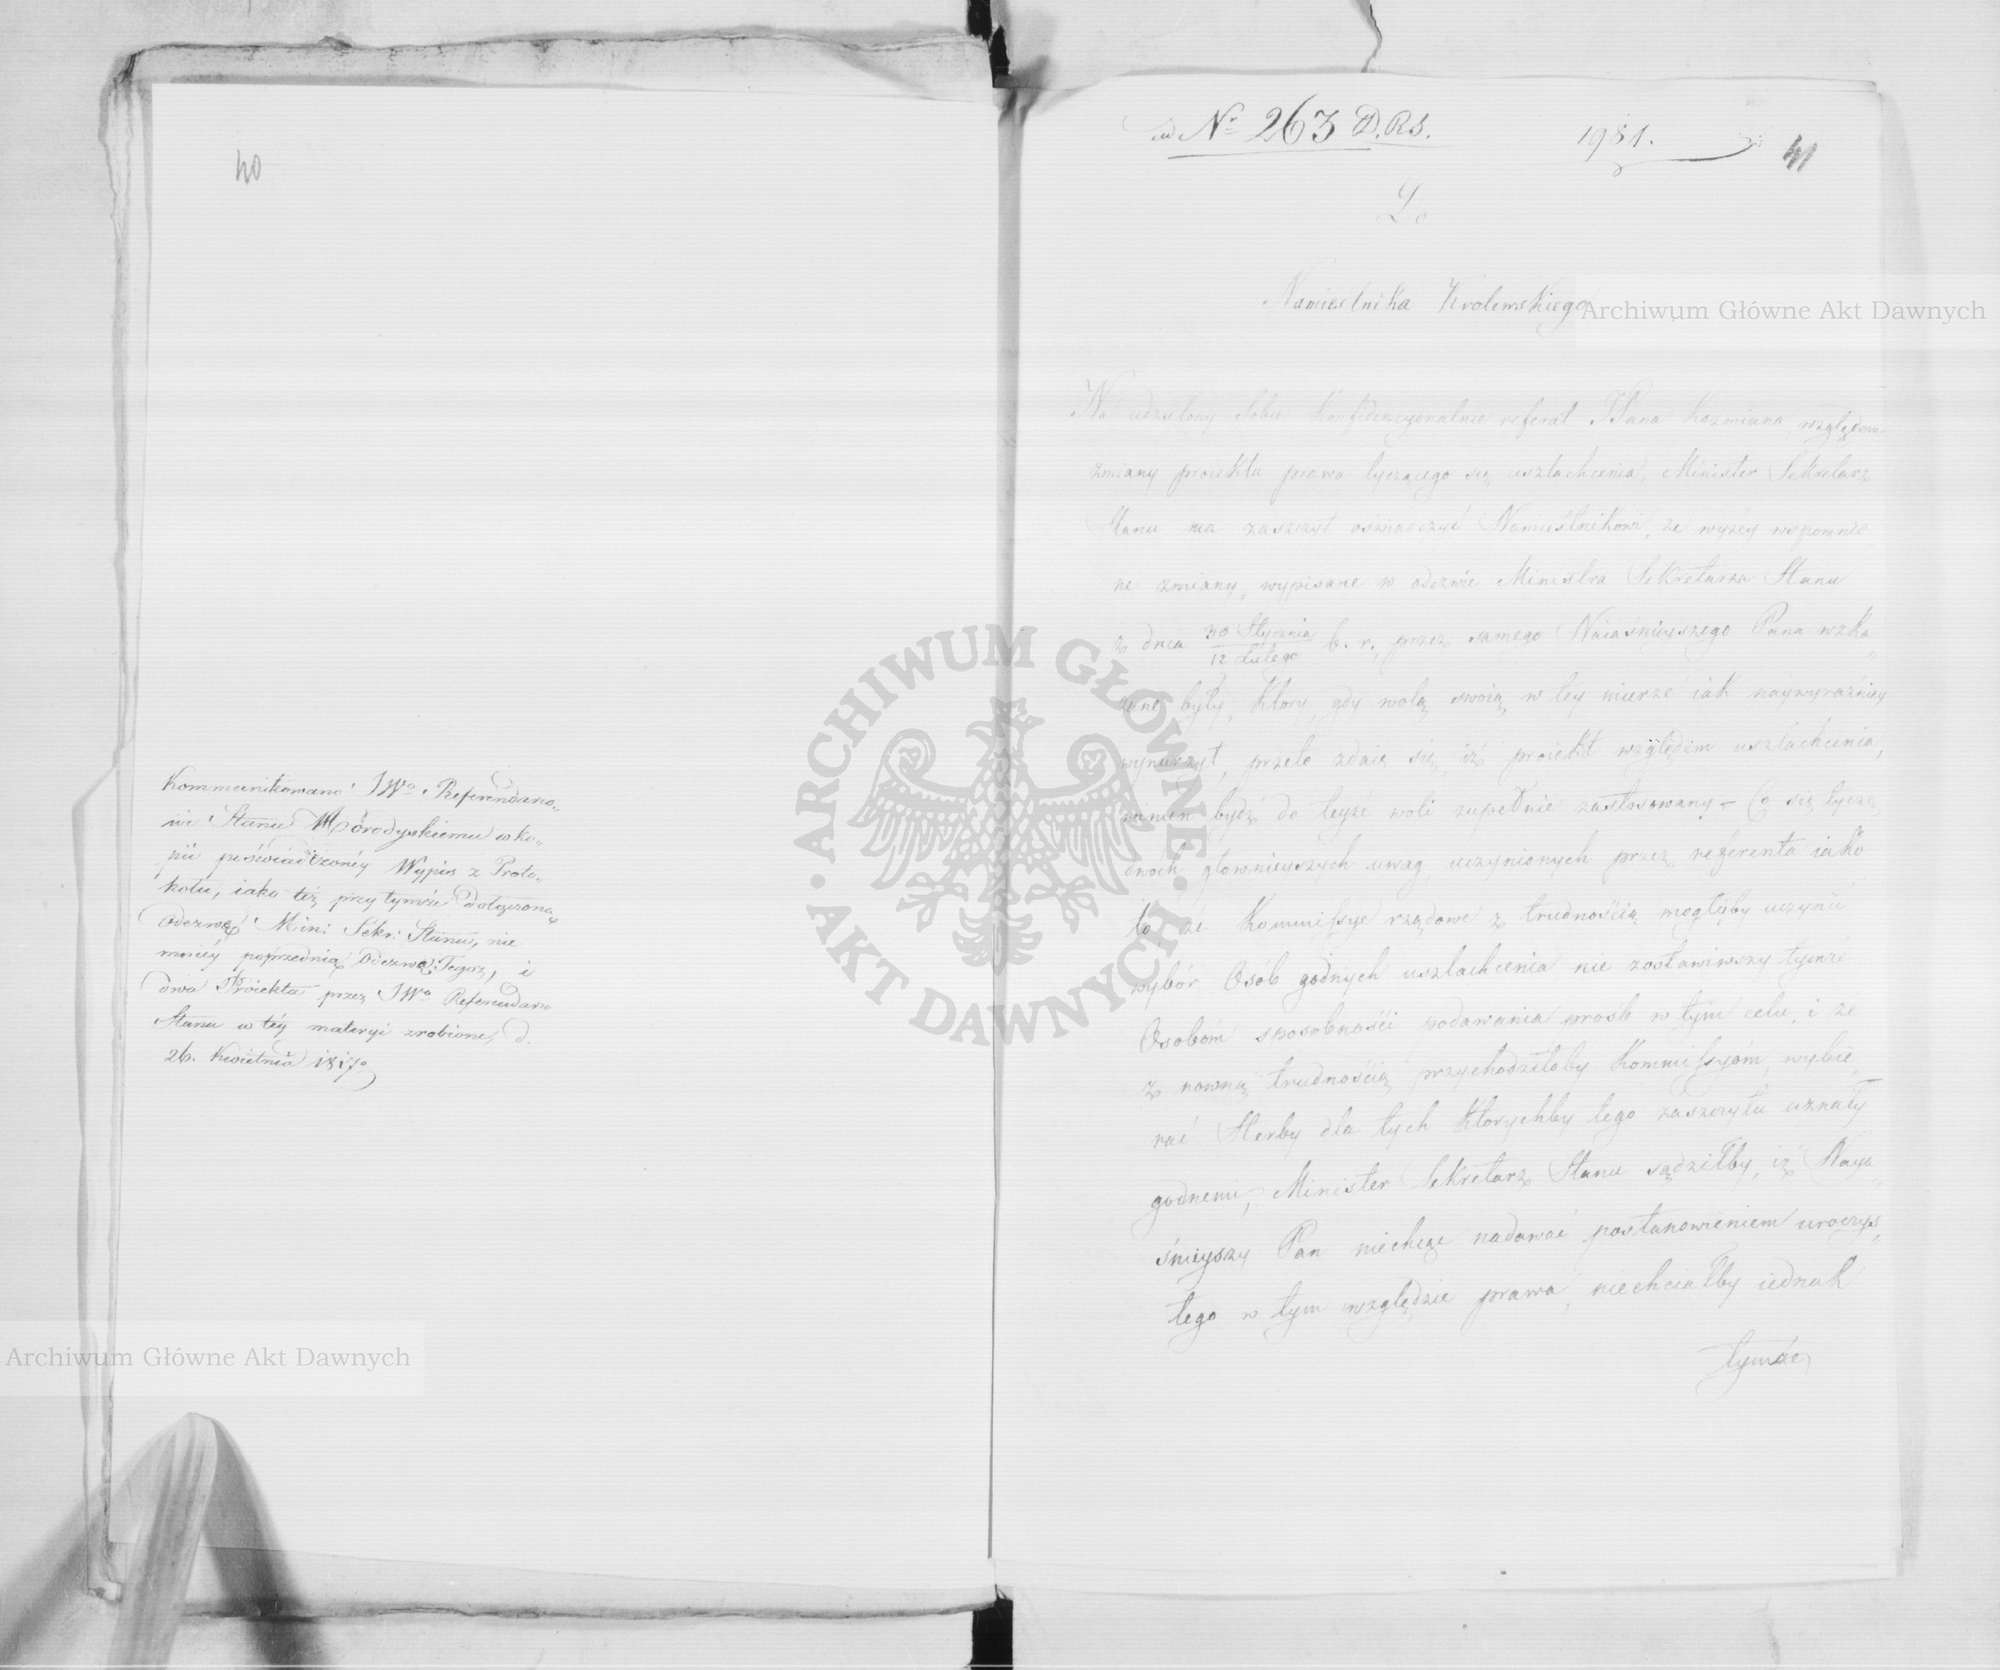 40
Kommunikowano JWo Referendarzo„
wi Stanu Morodyskiemu w ko„
pii poświadczonéy Wypis z Proto„
kołu, iako też przy tymże dołączoną
Odezwę Min: Sekr: Stanu, nie
mniéy poprzednią Odezwę Tegoż, i
dwa Proiekta przez JWo Referendarza
Stanu w téy materyi zrobione, d.
26. Kwietnia 1817.
ad Nr 263 D.R.S. 1981. 41
Do
Namiestnika Krolewskiego
Na udzielony Sobie konfidencyonalnie referat JPana Kozmiana, względem
zmiany proiektu prawa tyczącego się uszlachcenia, Minister Sekretarz
Stanu ma zaszczyt oświadczyć Namiestnikowi, że wyżey wspomnio„
ne zmiany, wypisane w odezwie Ministra Sekretarza Stanu
z dnia 30 Stycznia / 12 Lutego b. r., przez samego Naiaśnieyszego Pana wska„
zane były, ktory, gdy wolą swoią w tey mierze iak naywyraźniey
wynurzył, przeto zdaie się, iż proiekt względem uszlachcenia,
winien bydź do teyże woli zupełnie zastosowany – Co się tycze
dwóch głownieyszych uwag, uczynionych przez referenta iako
to, że Kommissye rządowe z trudnością mogłyby uczynić
wybór Osób godnych uszlachcenia nie zostawiwszy tymże
Osobom sposobności podawania prośb w tym celu, i że
z rowną trudnością przychodziłoby Kommissyom, wybie„
rać Herby dla tych ktorychby tego zaszczytu uznały
godnemi, Minister Sekretarz Stanu sądziłby, iż Naya„
śnieyszy Pan niechcąc nadawać postanowieniem uroczys„
tego w tym względzie prawa, niechciałby iednak
tymże
Archiwum Główne Akt Dawnych
Archiwum Główne Akt Dawnych
ARCHIWUM GŁÓWNE
AKT DAWNYCH